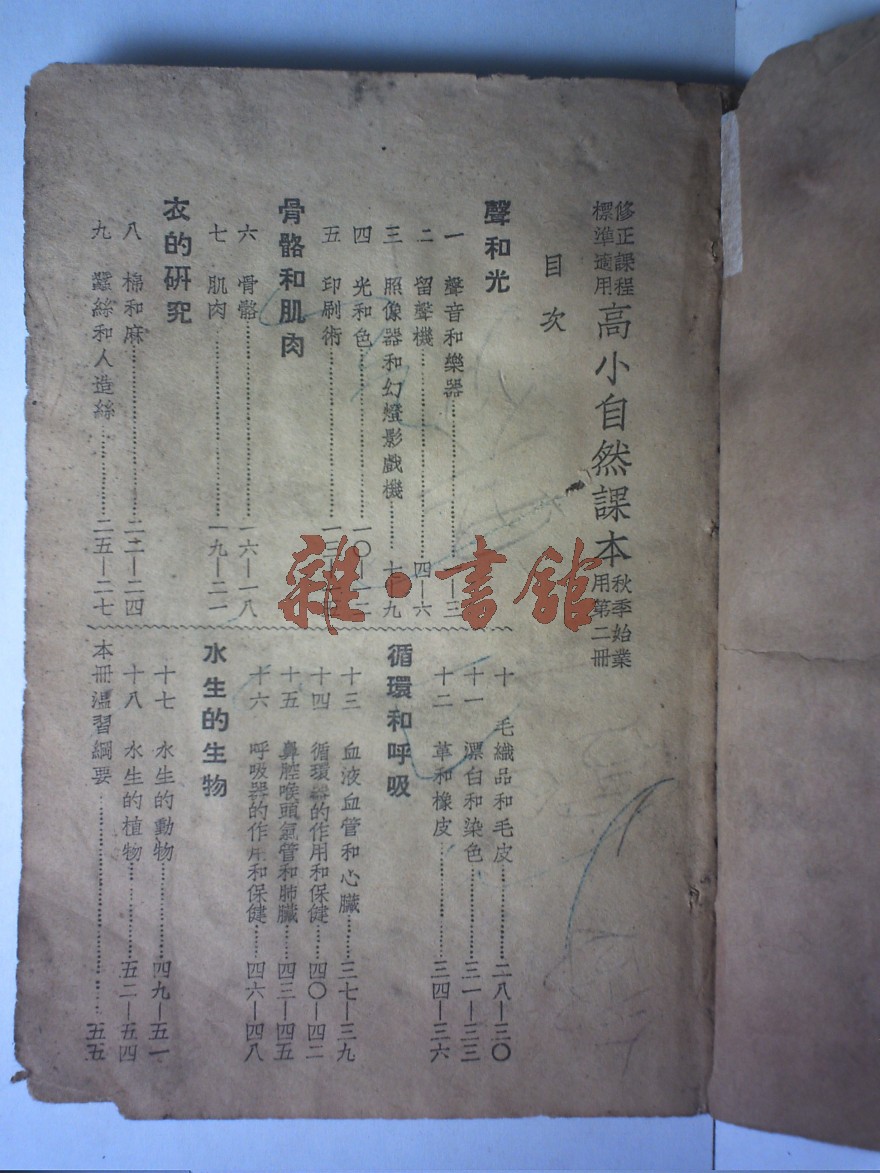 修正課程標準適用 高小自然課本 秋季始業用第二冊
目次
聲和光
一 聲音和樂器……一—三
二 留聲機……四—六
三 照像器和幻燈影戲機……七—九
四 光和色……一〇—一二
五 印刷術……一三—
骨骼和肌肉
六 骨骼……一六—一八
七 肌肉……一九—二一
衣的研究
八 棉和麻……二二—二四
九 蠶絲和人造絲……二五—二七
十 毛織品和毛皮……二八—三〇
十一 漂白和染色……三一—三三
十二 革和橡皮……三四—三六
循環和呼吸
十三 血液血管和心臟……三七—三九
十四 循環器的作用和保健……四〇—四二
十五 鼻腔喉頭氣管和肺臟……四三—四五
十六 呼吸器的作用和保健……四六—四八
水生的生物
十七 水生的動物……四九—五一
十八 水生的植物……五二—五四
本冊溫習綱要……五五
雜·書館